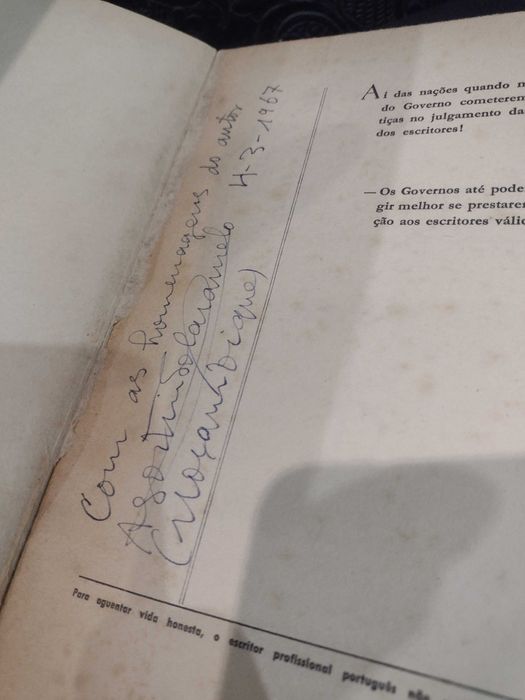 Com as homenagens do autor
Agostinho Caramelo 4-3-1967
(Moçambique)
Ai das nações quando
do Governo cometerem
tiças no julgamento da
dos escritores!
— Os Governos até pode
gir melhor se prestarem
ção aos escritores válid
Para aguentar vida honesta, o escritor profissional português não